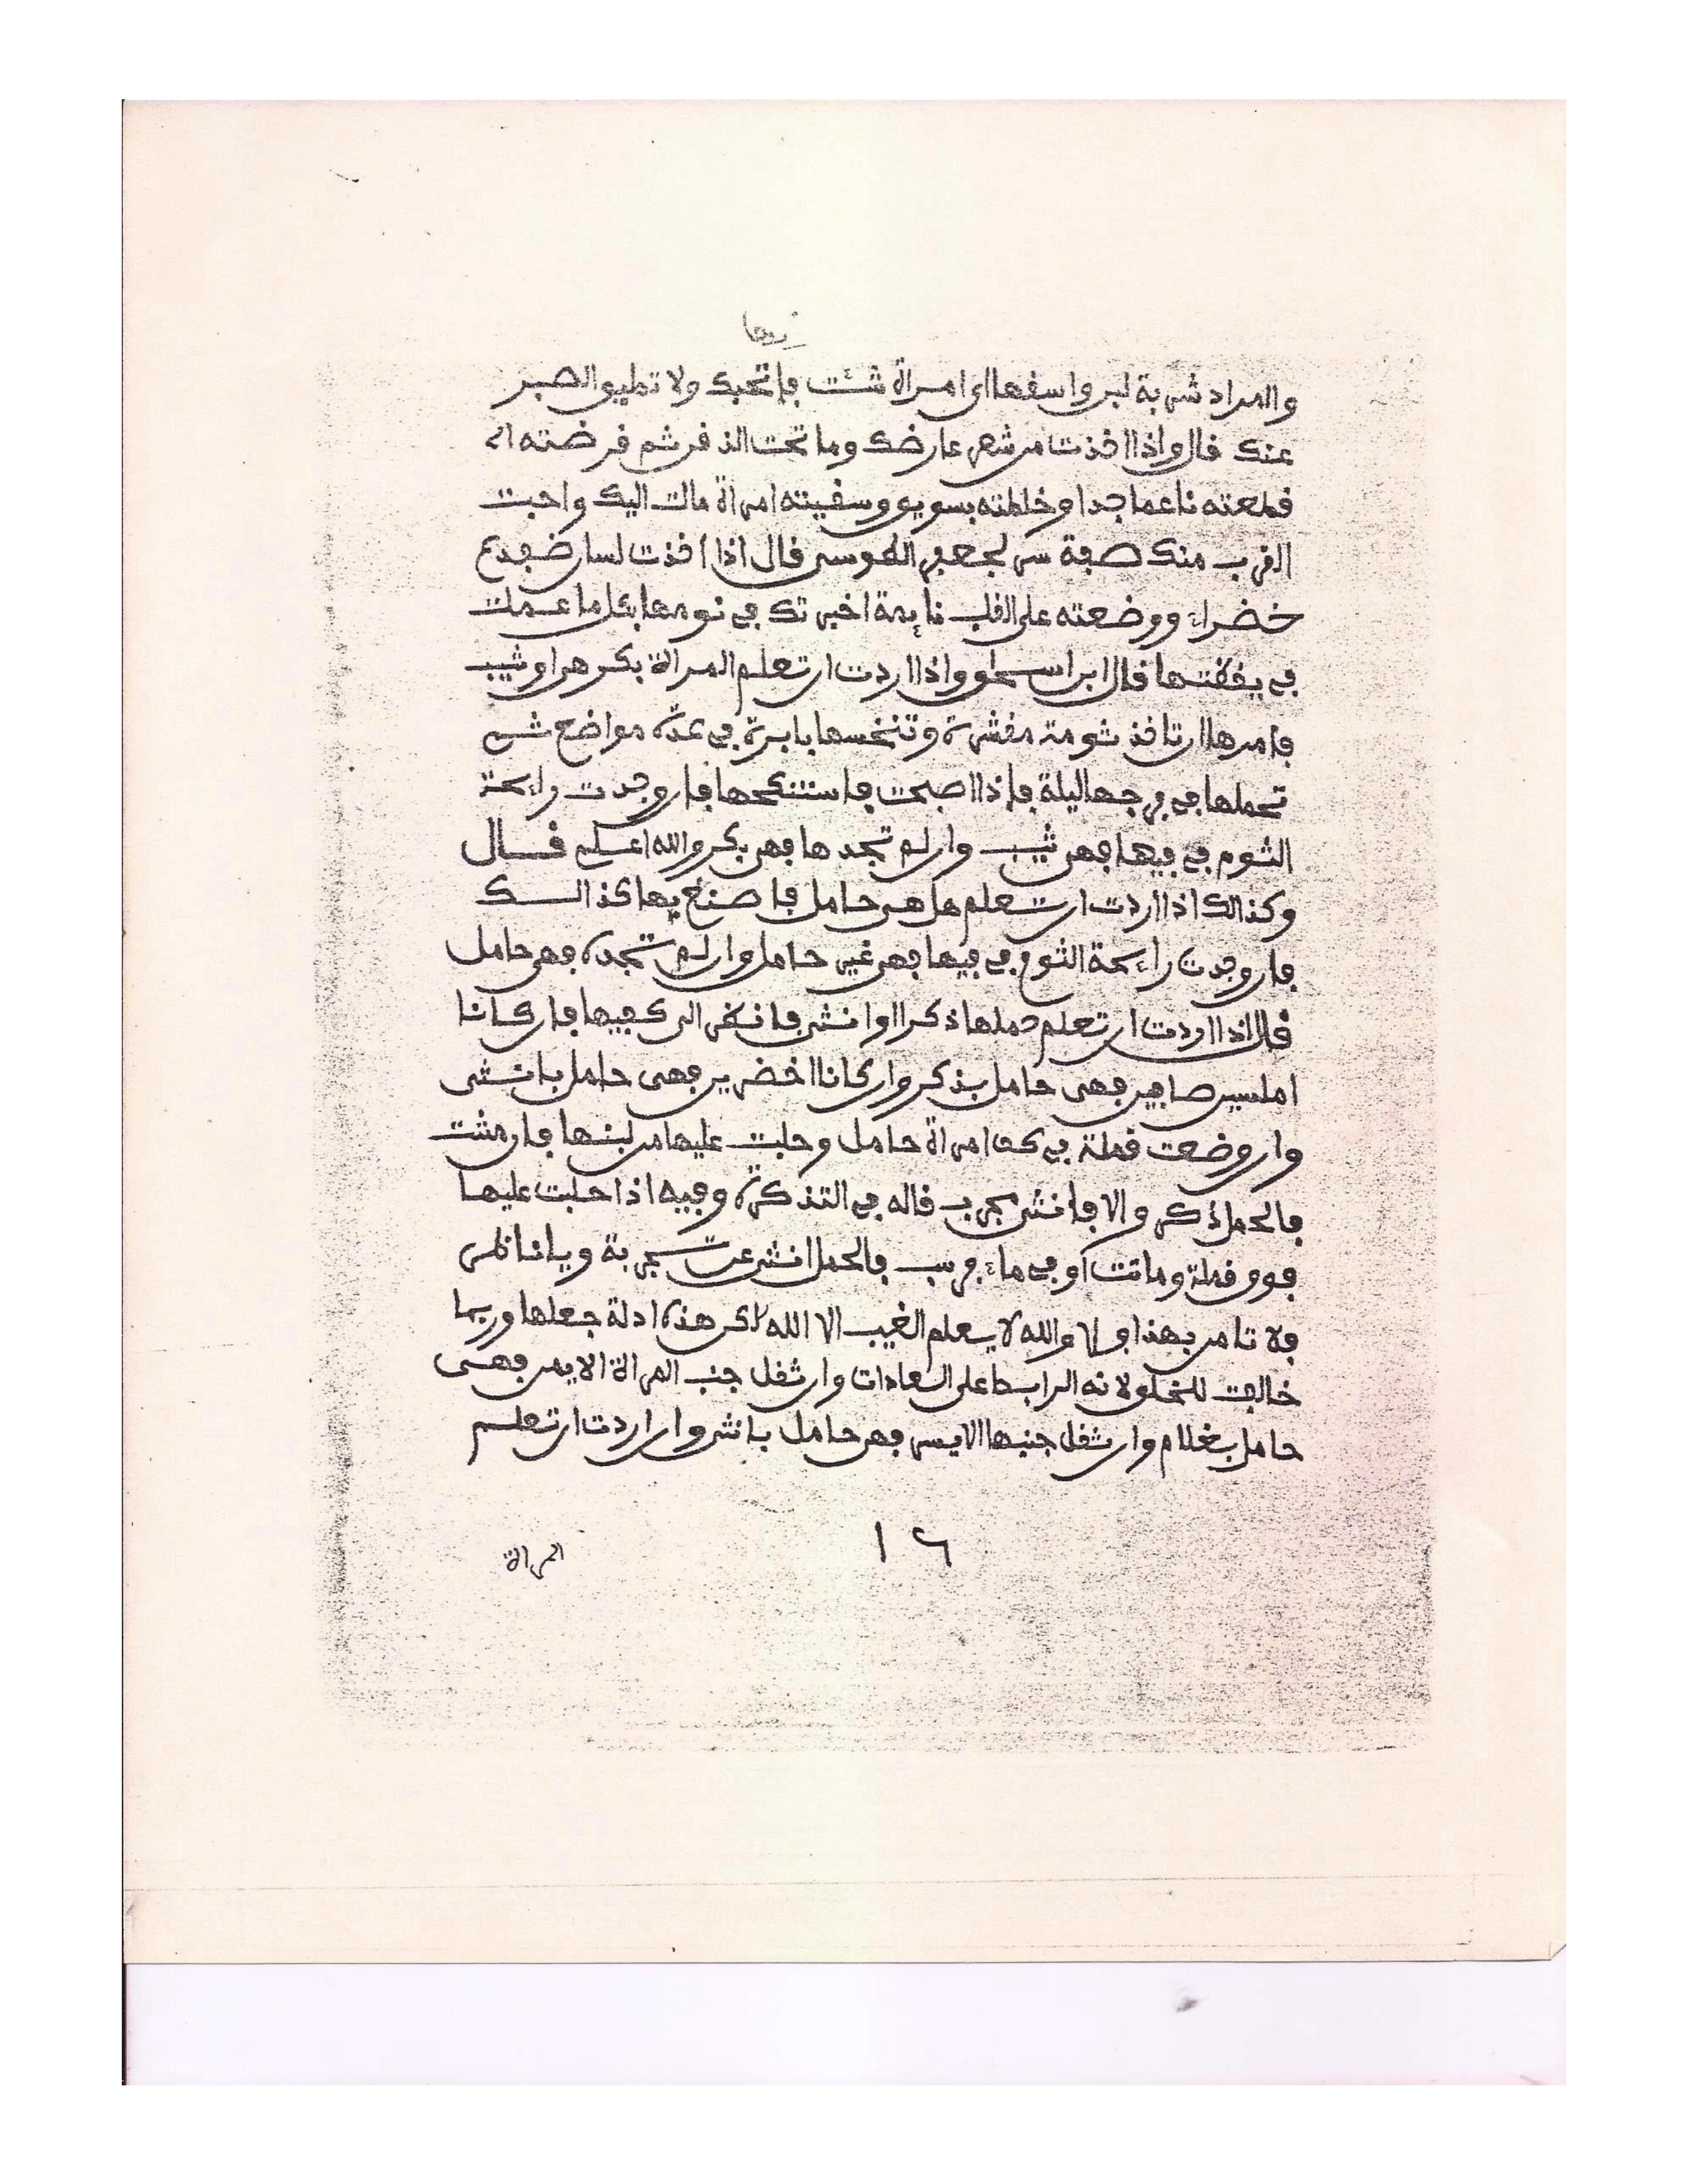 والمراد شربة لبن واسقها اي امراة شئت فإنها تحبك ولا تطيق الصبر
عنك قال واذا اخذت من شعر عارضك وما تحت الذقن ثم قرضته او
قطعته ناعما جدا وخلطته بسويق وسقيته امراة مالت اليك واحبت
القرب منك صفة سر لجعفر الطوسي قال اذا اخذت لسان ضفدع
خضراء ووضعته على القلب نايمة اخبرتك في نومها بكل ما عملت
في يقظتها قال ابن اسحاق واذا اردت ان تعلم المراة بكر هي او ثيب
فامرها ان تاخذ ثومة مقشرة وتنخسها بابرة في عدة مواضع ثم
تحملها في فرجها ليلة فإذا اصبحت فاستنكحها فإن وجدت رائحة
الثوم في فيها فهي ثيب وان لم تجدها فهي بكر والله اعلم قال
وكذالك اذا اردت ان تعلم هل هي حامل فاصنع بها كذالك
فإن وجدت رائحة الثوم في فيها فهي غير حامل وان لم تجده فهي حامل
قال اذا اردت ان تعلم حملها ذكرا او انثى فانظر الى كفيها فإن كانا
املسين صافيين فهي حامل بذكر وان كانا اخضرين فهي حامل بانثى
وان وضعت قملة في كف امراة حامل وحلبت عليها من لبنها فإن مشت
فالحمل ذكر والا فانثى مجرب قاله في التذكرة وفيه اذا حلبت عليها
فوق قملة وماتت او في ماء فرسب فالحمل انثى عن تجربة ويا ناظر
فلا تامن بهذا والله لا يعلم الغيب الا الله لاكن هذه ادلة جعلها وربما
خالفت للخلق لانه الرابط على العادات وان ثقل جنب المراة الايمن فهي
حامل بغلام وان ثقل جنبها الايسر فهي حامل بانثى وان اردت ان تعلم
١٦
المراة